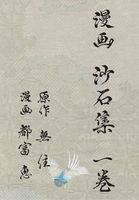 漫画 沙石集 一巻
原作 無住
漫画 都富恵